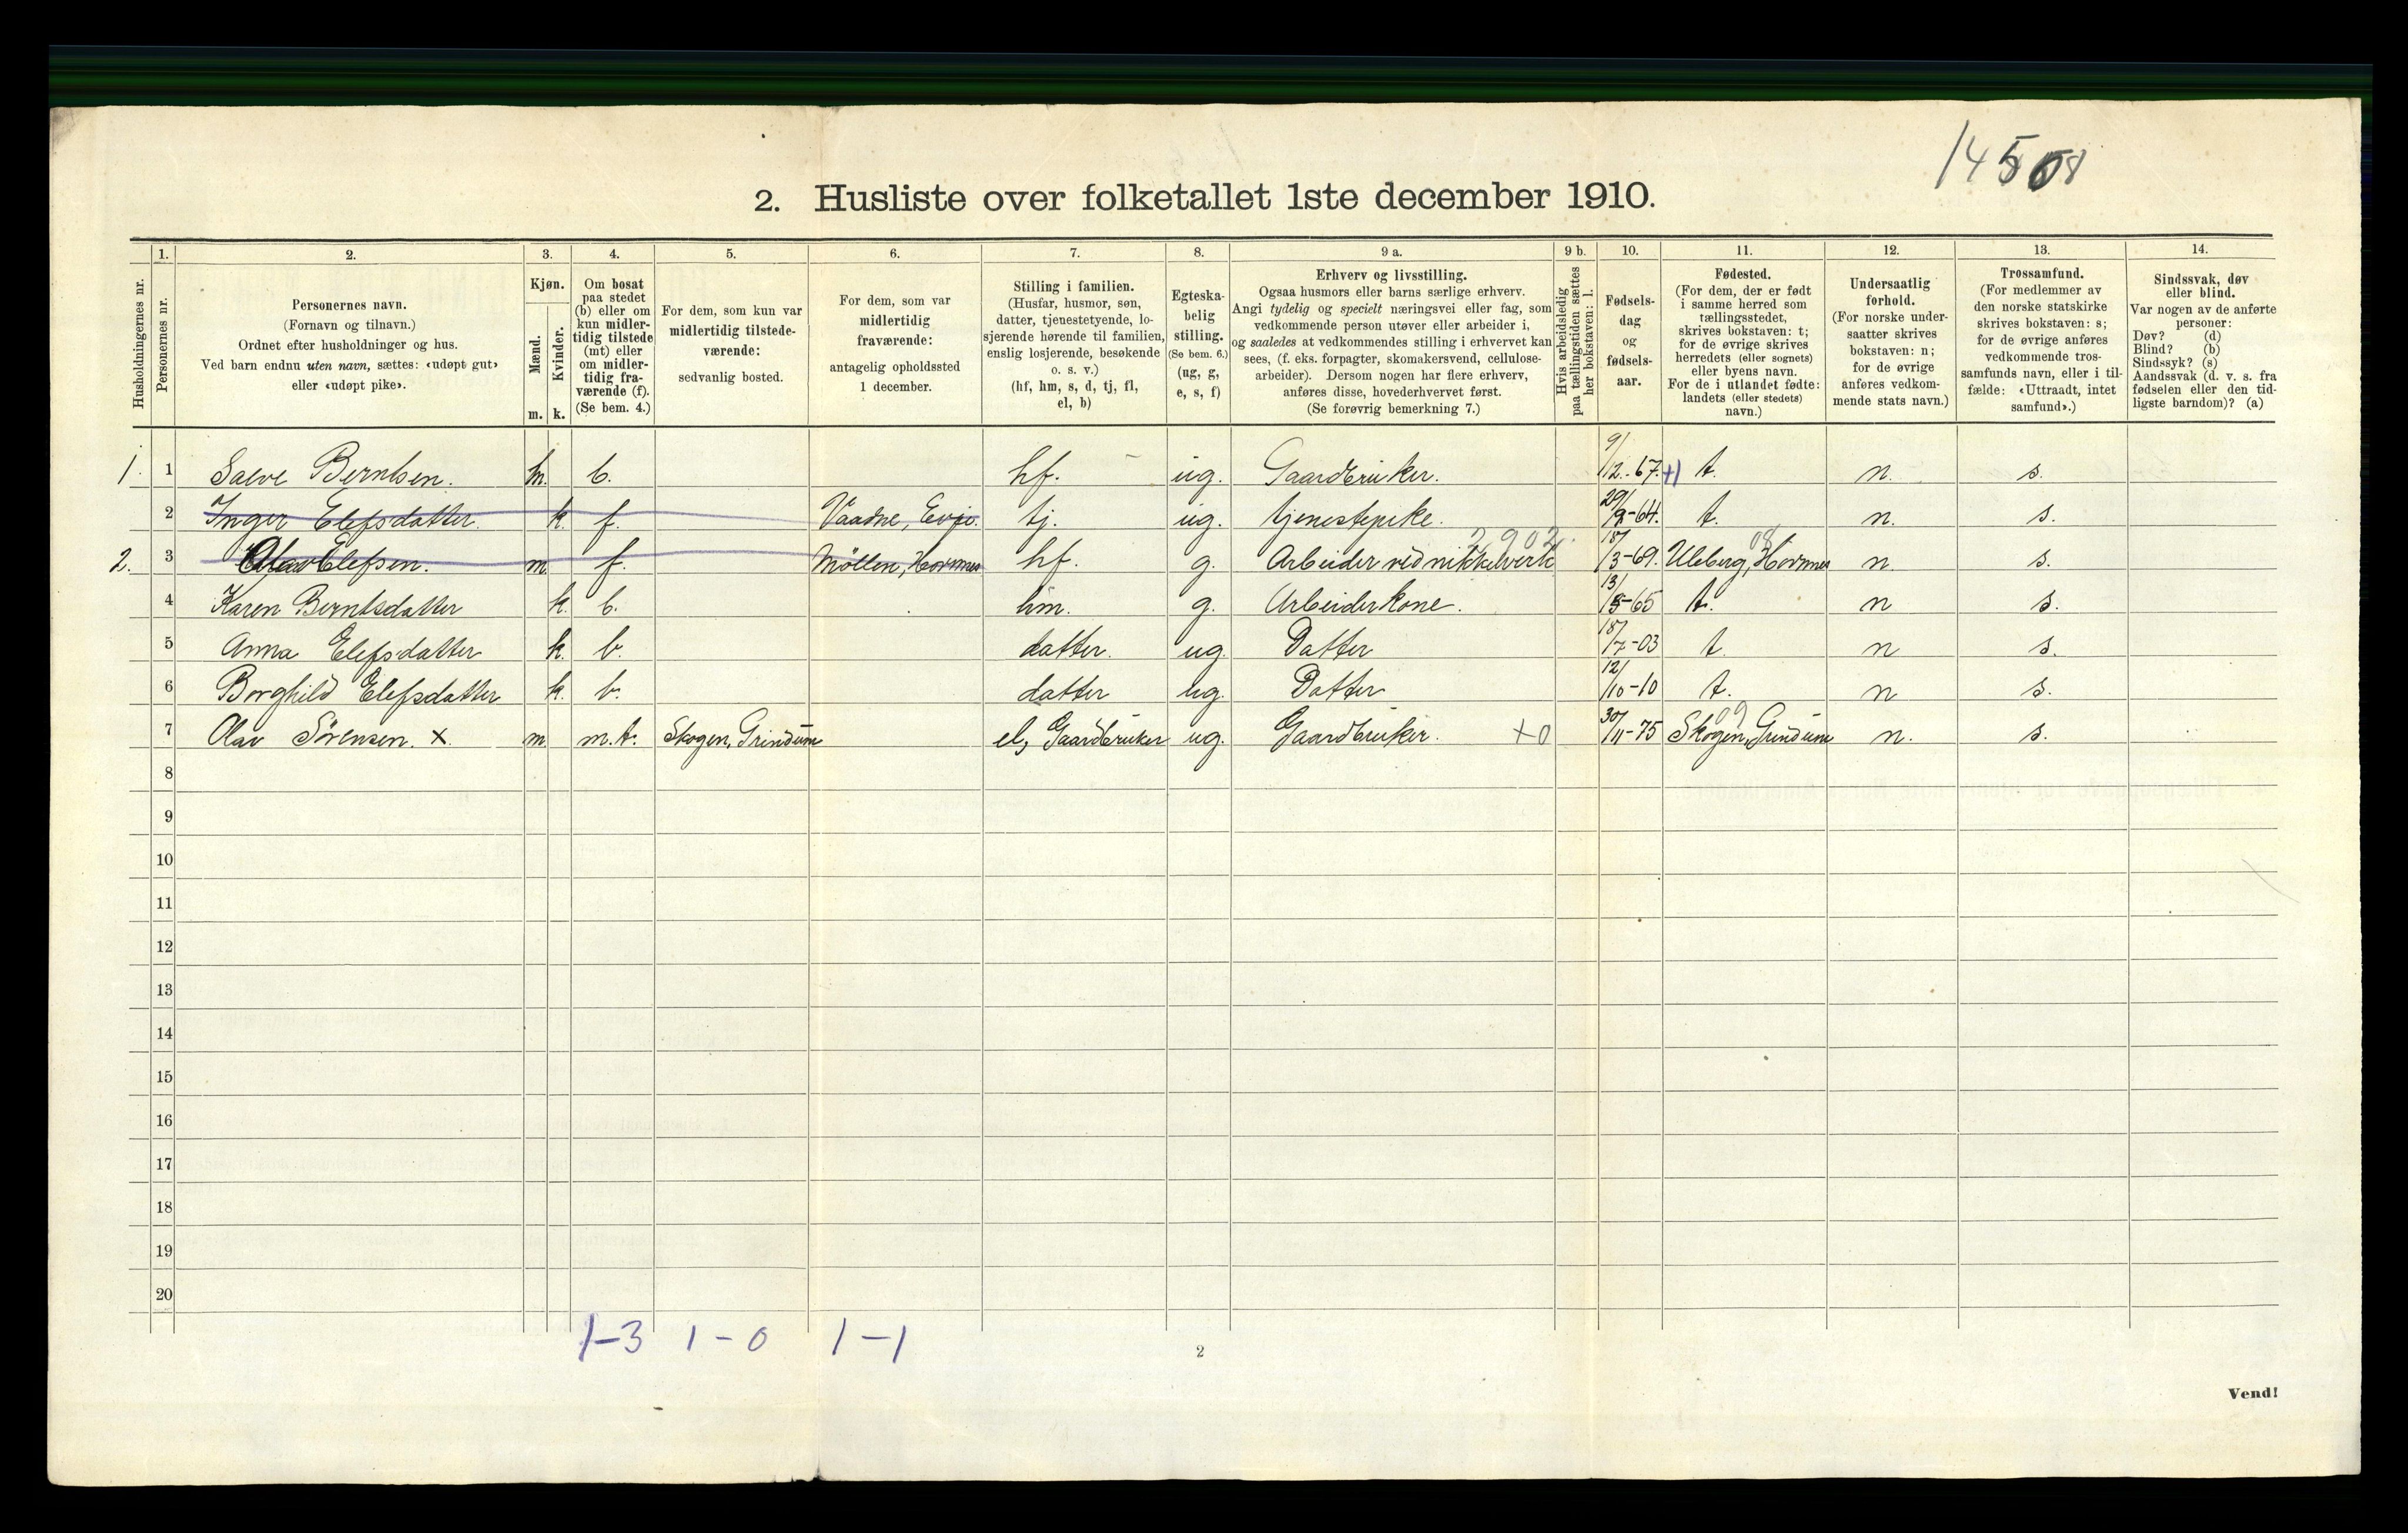 14508
2. Husliste over folketallet 1ste december 1910.
Husholdningernes nr.
1.
Personernes nr.
2.
Personernes navn.
(Fornavn og tilnavn.)
Ordnet efter husholdninger og hus.
Ved barn endnu uten navn, sættes: «udøpt gut»
eller «udøpt pike».
3.
Kjøn.
Mænd.
Kvinder.
m. k.
4.
Om bosat
paa stedet
(b) eller om
kun midler-
tidig tilstede
(mt) eller
om midler-
tidig fra-
værende (f).
(Se bem. 4.)
5.
For dem, som kun var
midlertidig tilstede-
værende:
sedvanlig bosted.
6.
For dem, som var
midlertidig
fraværende:
antagelig opholdssted
1 december.
7.
Stilling i familien.
(Husfar, husmor, søn,
datter, tjenestetyende, lo-
sjerende hørende til familien,
enslig losjerende, besøkende
o. s. v.)
(hf, hm, s, d, tj, fl,
el, b)
8.
Egteska-
belig
stilling.
(Se bem. 6.)
(ug, g,
e, s, f)
9 a.
Erhverv og livsstilling.
Ogsaa husmors eller barns særlige erhverv.
Angi tydelig og specielt næringsvei eller fag, som
vedkommende person utøver eller arbeider i,
og saaledes at vedkommendes stilling i erhvervet kan
sees, (f. eks. forpagter, skomakersvend, cellulose-
arbeider). Dersom nogen har flere erhverv,
anføres disse, hovederhvervet først.
(Se forøvrig bemerkning 7.)
9 b.
Hvis arbeidsledig
paa tællingstiden sættes
her bokstaven: l.
10.
Fødsels-
dag
og
fødsels-
aar.
11.
Fødested.
(For dem, der er født
i samme herred som
tællingsstedet,
skrives bokstaven: t;
for de øvrige skrives
herredets (eller sognets)
eller byens navn.
For de i utlandet fødte:
landets (eller stedets)
navn.)
12.
Undersaatlig
forhold.
(For norske under-
saatter skrives
bokstaven: n;
for de øvrige
anføres vedkom-
mende stats navn.)
13.
Trossamfund.
(For medlemmer av
den norske statskirke
skrives bokstaven: s;
for de øvrige anføres
vedkommende tros-
samfunds navn, eller i til-
fælde: «Uttraadt, intet
samfund».)
14.
Sindssvak, døv
eller blind.
Var nogen av de anførte
personer:
Døv? (d)
Blind? (b)
Sindssyk? (s)
Aandssvak (d. v. s. fra
fødselen eller den tid-
ligste barndom)? (a)
1. 1 Salve Berntsen. m. b. hf. ug. Gaardbruker. 9/12-67. +1 t. n. s.
2 Inger Elefsdatter. k. f. Vaadne, Evje. tj. ug. tjenestepike. 29/9-64. t. n. s.
2. 3 Olav Elefsen. m f. Möllen, Hornnes hf. g. Arbeider ved nikkelverk 2,902. 18/3-69. Uleberg, Hornnes 08 n. s.
4 Karen Berntsdatter k. b. hm. g. Arbeiderkone. 13/8-65 t. n s.
5 Anna Elefsdatter k. b. datter. ug. Datter 18/7-03 t. n s.
6 Borghild Elefsdatter k. b. datter ug. Datter 12/10-10 t. n s.
7 Olav Sörensen. x. m m.t. Skogen, Grindum el, Gaardbruker ug. Gaardbruker. +0 30/11-75 Skogen, Grindum 09 n. s.
8
9
10
11
12
13
14
15
16
17
18
19
20
1-3 1-0 1-1
2
Vend!